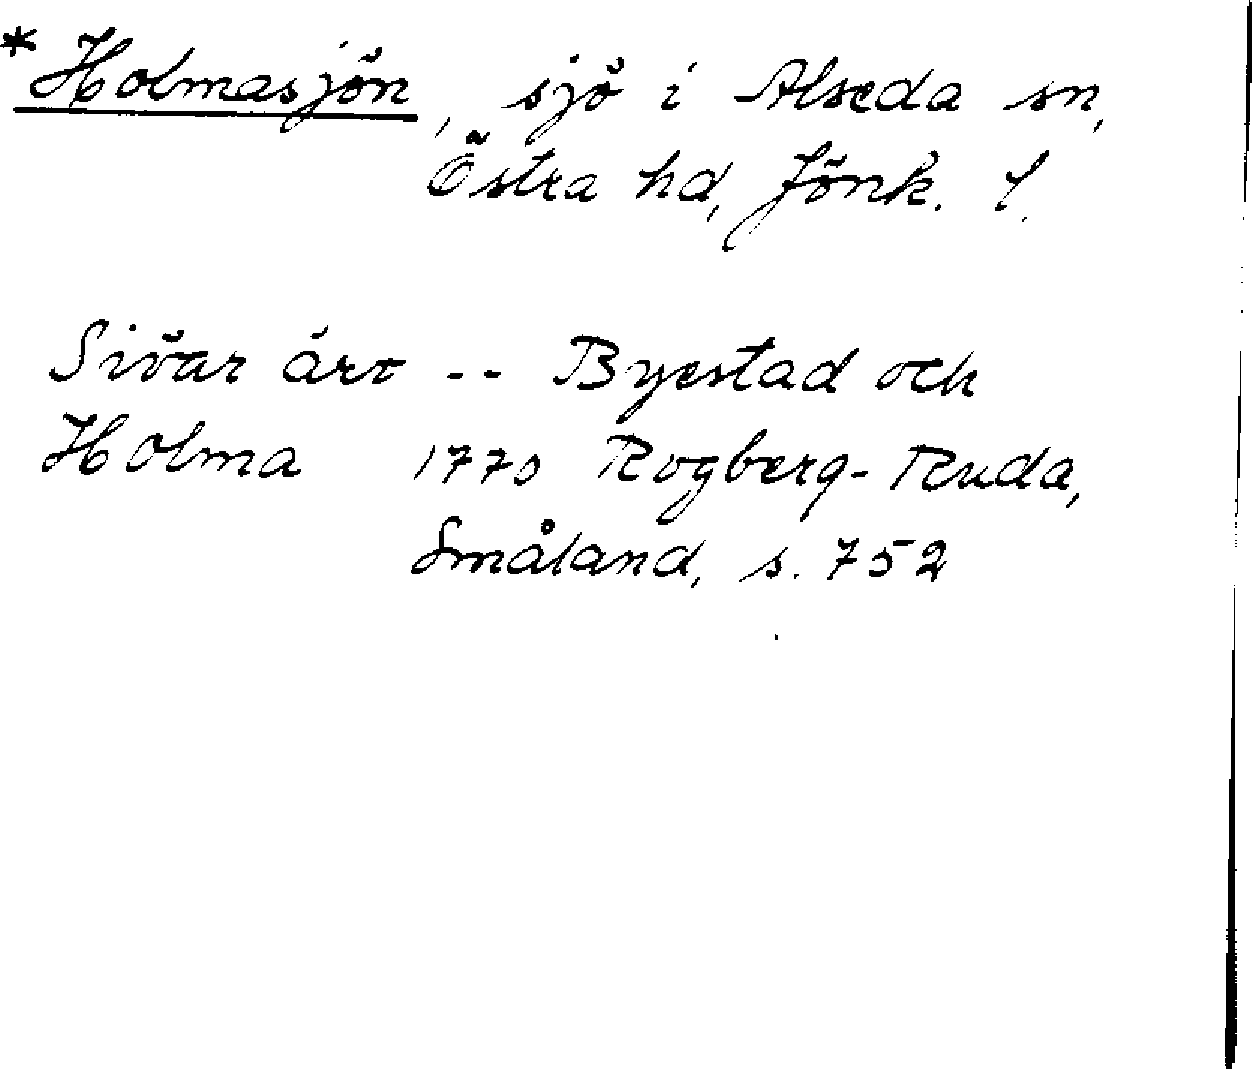 *Holmasjön, sjö i Alseda sn,
Östra hd, Jönk. l.
Siöar äro -- Byestad och
Holma 1770 Rogberg-Ruda,
Småland, s. 752